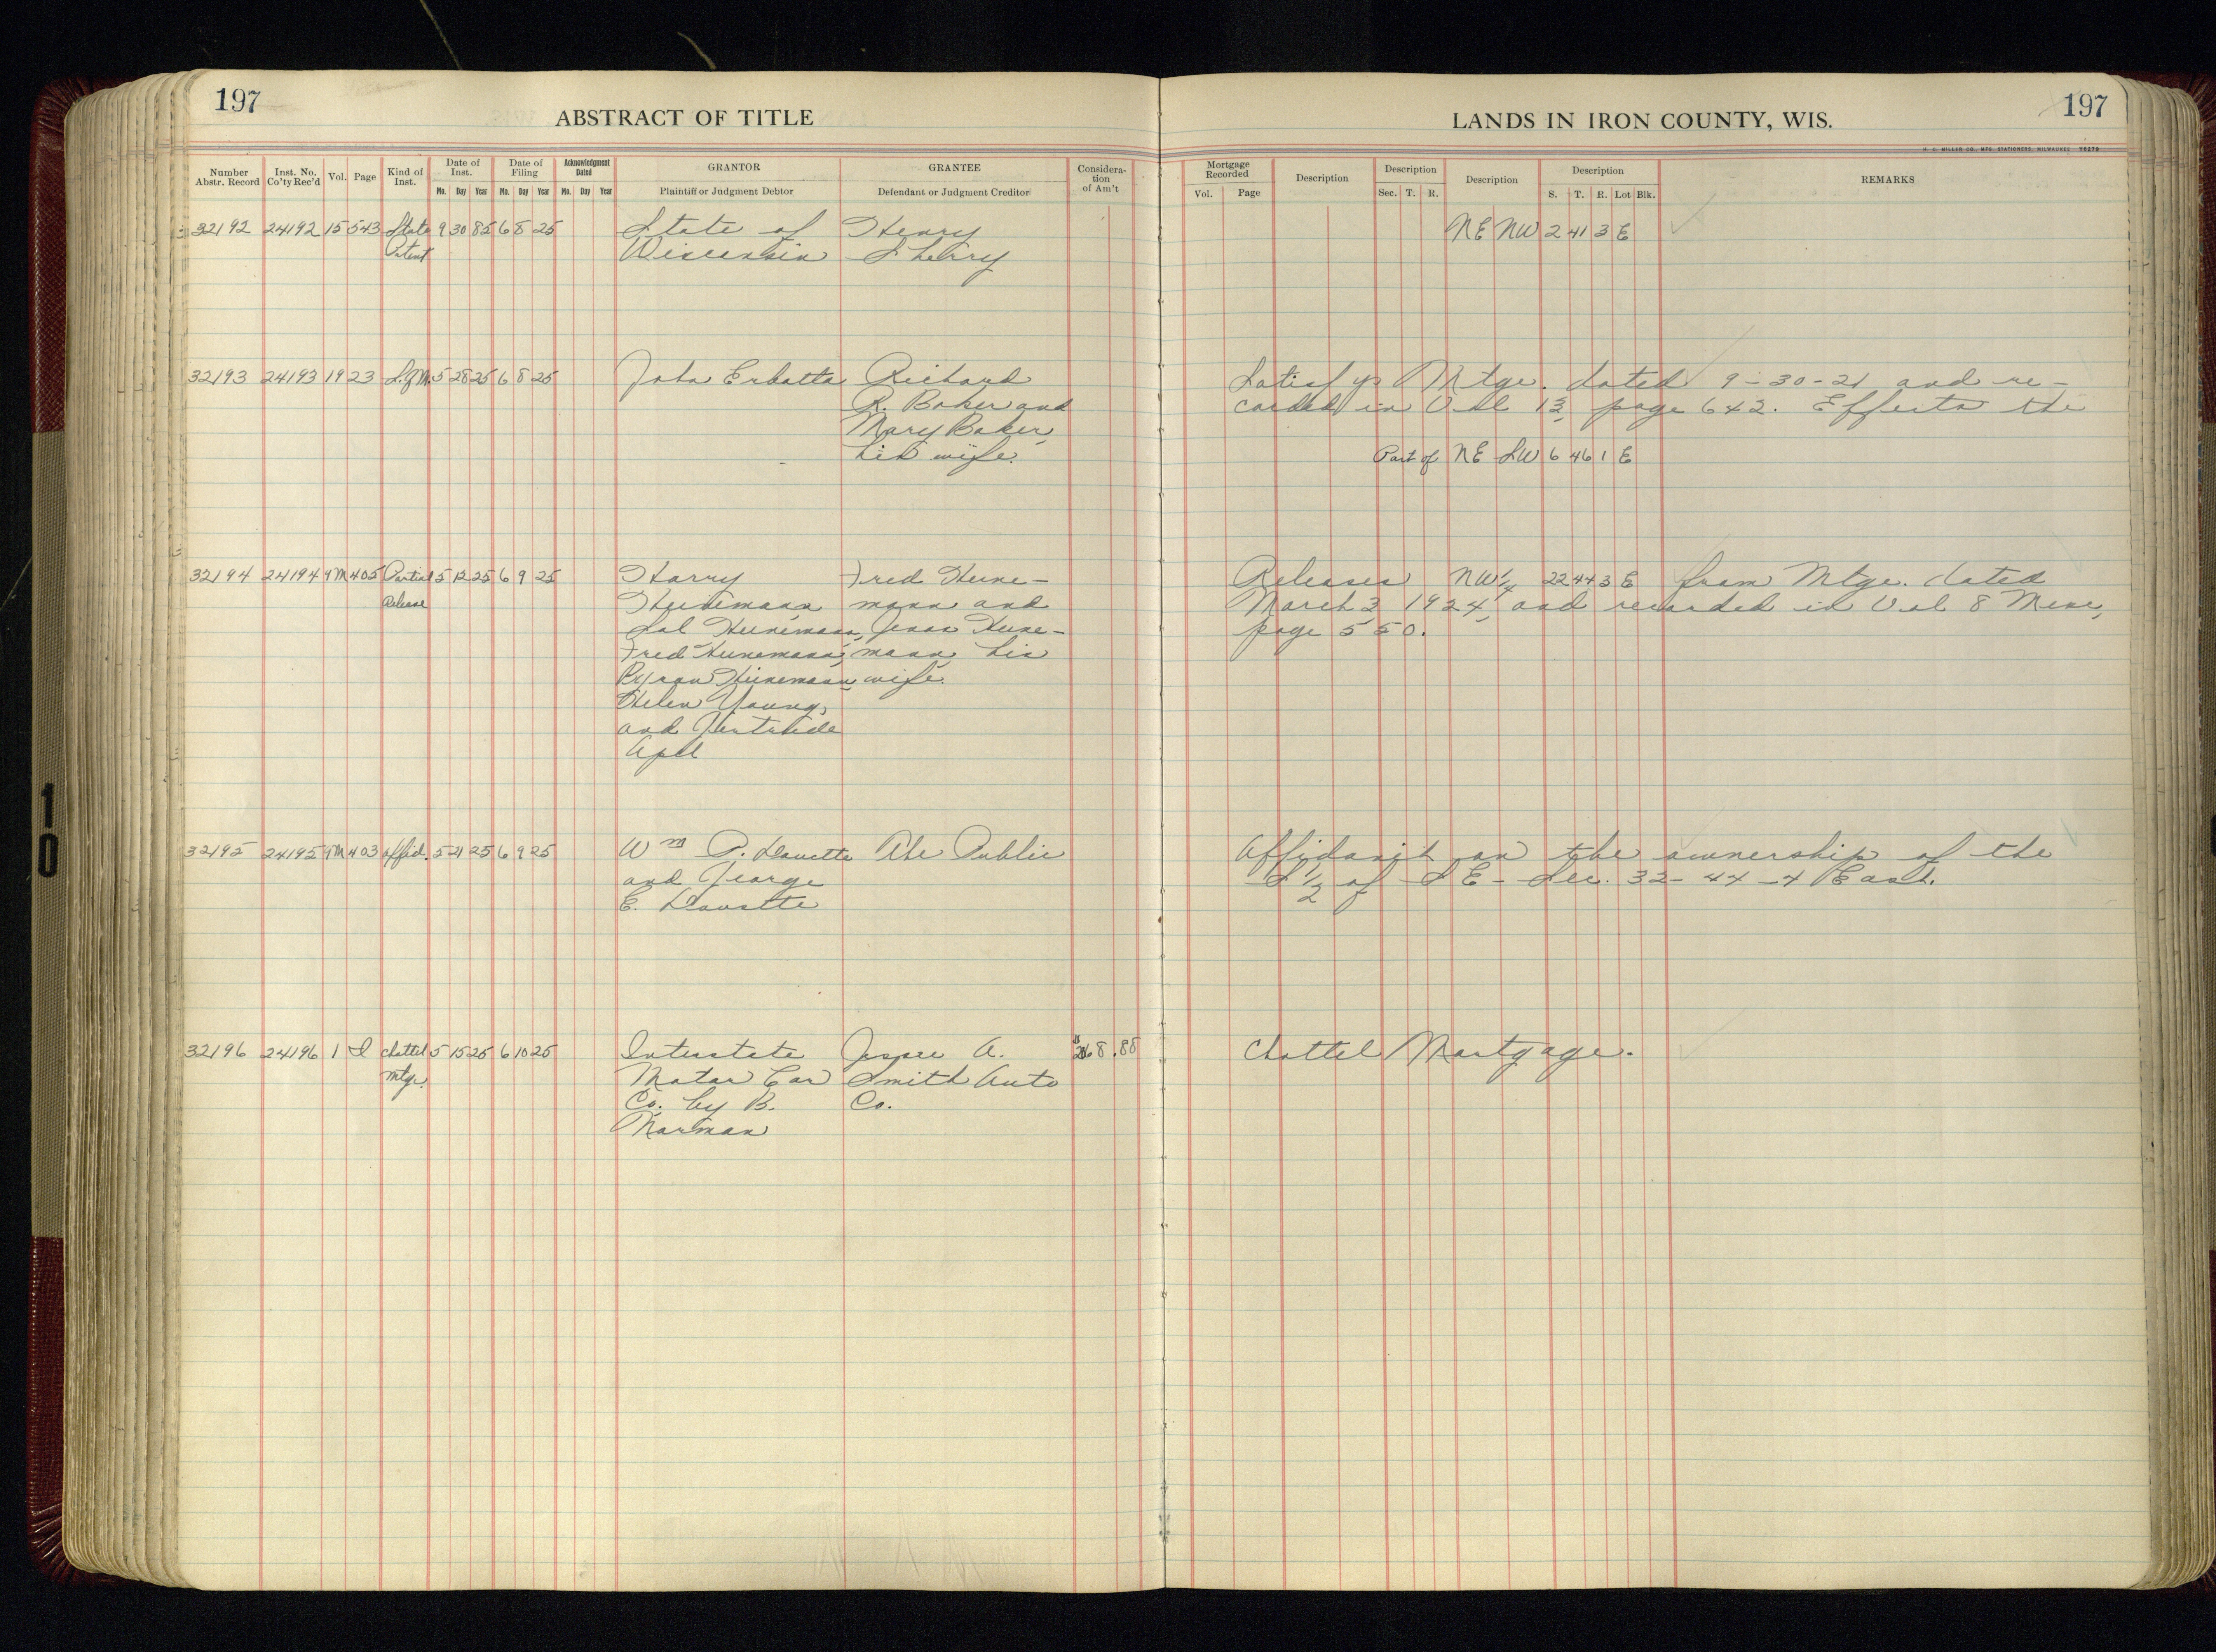 197
ABSTRACT OF TITLE
LANDS IN IRON COUNTY, WIS.
197
H. C. MILLER CO., MFG. STATIONERS, MILWAUKEE
Number Abstr. Record
Inst. No. Co'ty Rec'd
Vol.
Page
Kind of Inst.
Date of Inst.
Mo. Day Year
Date of Filing
Mo. Day Year
Acknowledgment Dated
Mo. Day Year
GRANTOR
Plaintiff or Judgment Debtor
GRANTEE
Defendant or Judgment Creditor
Considera-
tion
of Am't
Mortgage Recorded
Vol. Page
Description
Description
Sec. T. R.
Description
Description
S. T. R. Lot Blk.
REMARKS
32192 24192 15 543 State 9 30 85 6 8 25 State of Henry NE NW 2 41 3 E
Patent Wisconsin Sherry
32193 24193 19 23 S. of M. 5 28 25 6 8 25 John Richard Satisfys Mtge. dated 9-30-21 and re-
R. Baker and corded in Vol 13, page 642. Effects the
Mary Baker,
his wife. Part of NE SW 6 46 1 E
32194 24194 9 M 405 Partial 5 12 25 6 9 25 Harry Fred Heine- Releases NW 1/4 22 44 3 E from Mtge. dated
Release Heinemann, mann and March 3, 1924, and recorded in Vol 8 Misc,
Sol Heinemann, Heine- page 550.
Fred Heinemann, mann, his
Byron Heinemann, wife.
Helen Young,
and Gertrude
Apel
32195 24195 9 M 403 Affid. 5 21 25 6 9 25 Wm P. The Public Affidavit on the ownership of the
and George S 1/2 of SE - Sec. 32 - 44 - 4 East.
E.
32196 24196 1 I Chattel 5 15 25 6 10 25 Interstate Jesse A. Chattel Mortgage.
Mtge. Motor Car Smith Auto
Co. by B. Co.
Norman
10